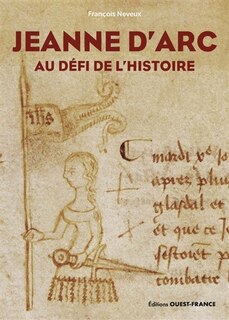 François Neveux
JEANNE D'ARC
AU DÉFI DE L'HISTOIRE
IHS
mardi
apres
et que ce
combatre
Éditions OUEST-FRANCE